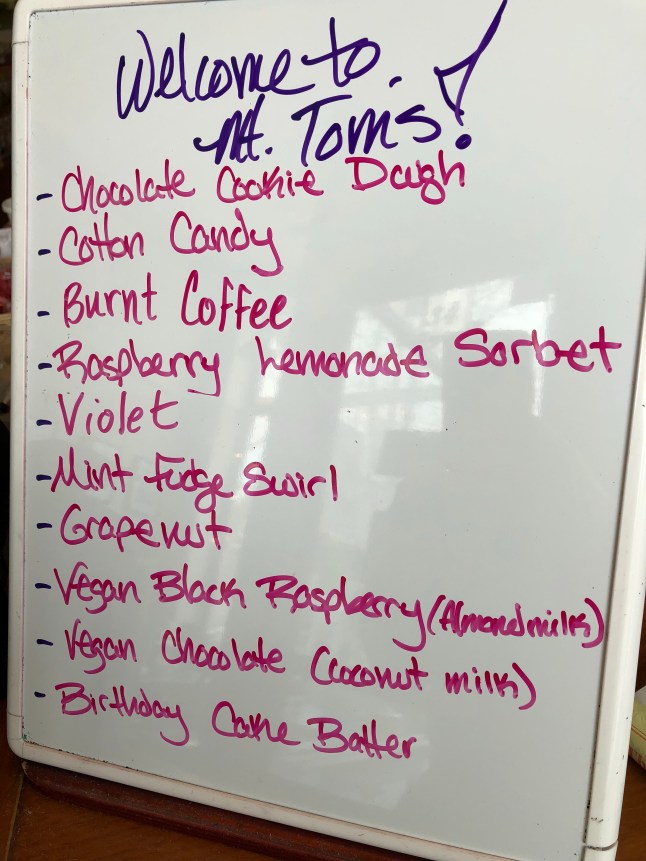 Welcome to
Mt. Toms!
- Chocolate Cookie Dough
- Cotton Candy
- Burnt Coffee
- Raspberry Lemonade Sorbet
- Violet
- Mint Fudge Swirl
- Grapenut
- Vegan Black Raspberry (Almond milk)
- Vegan Chocolate (Coconut milk)
- Birthday Cake Batter